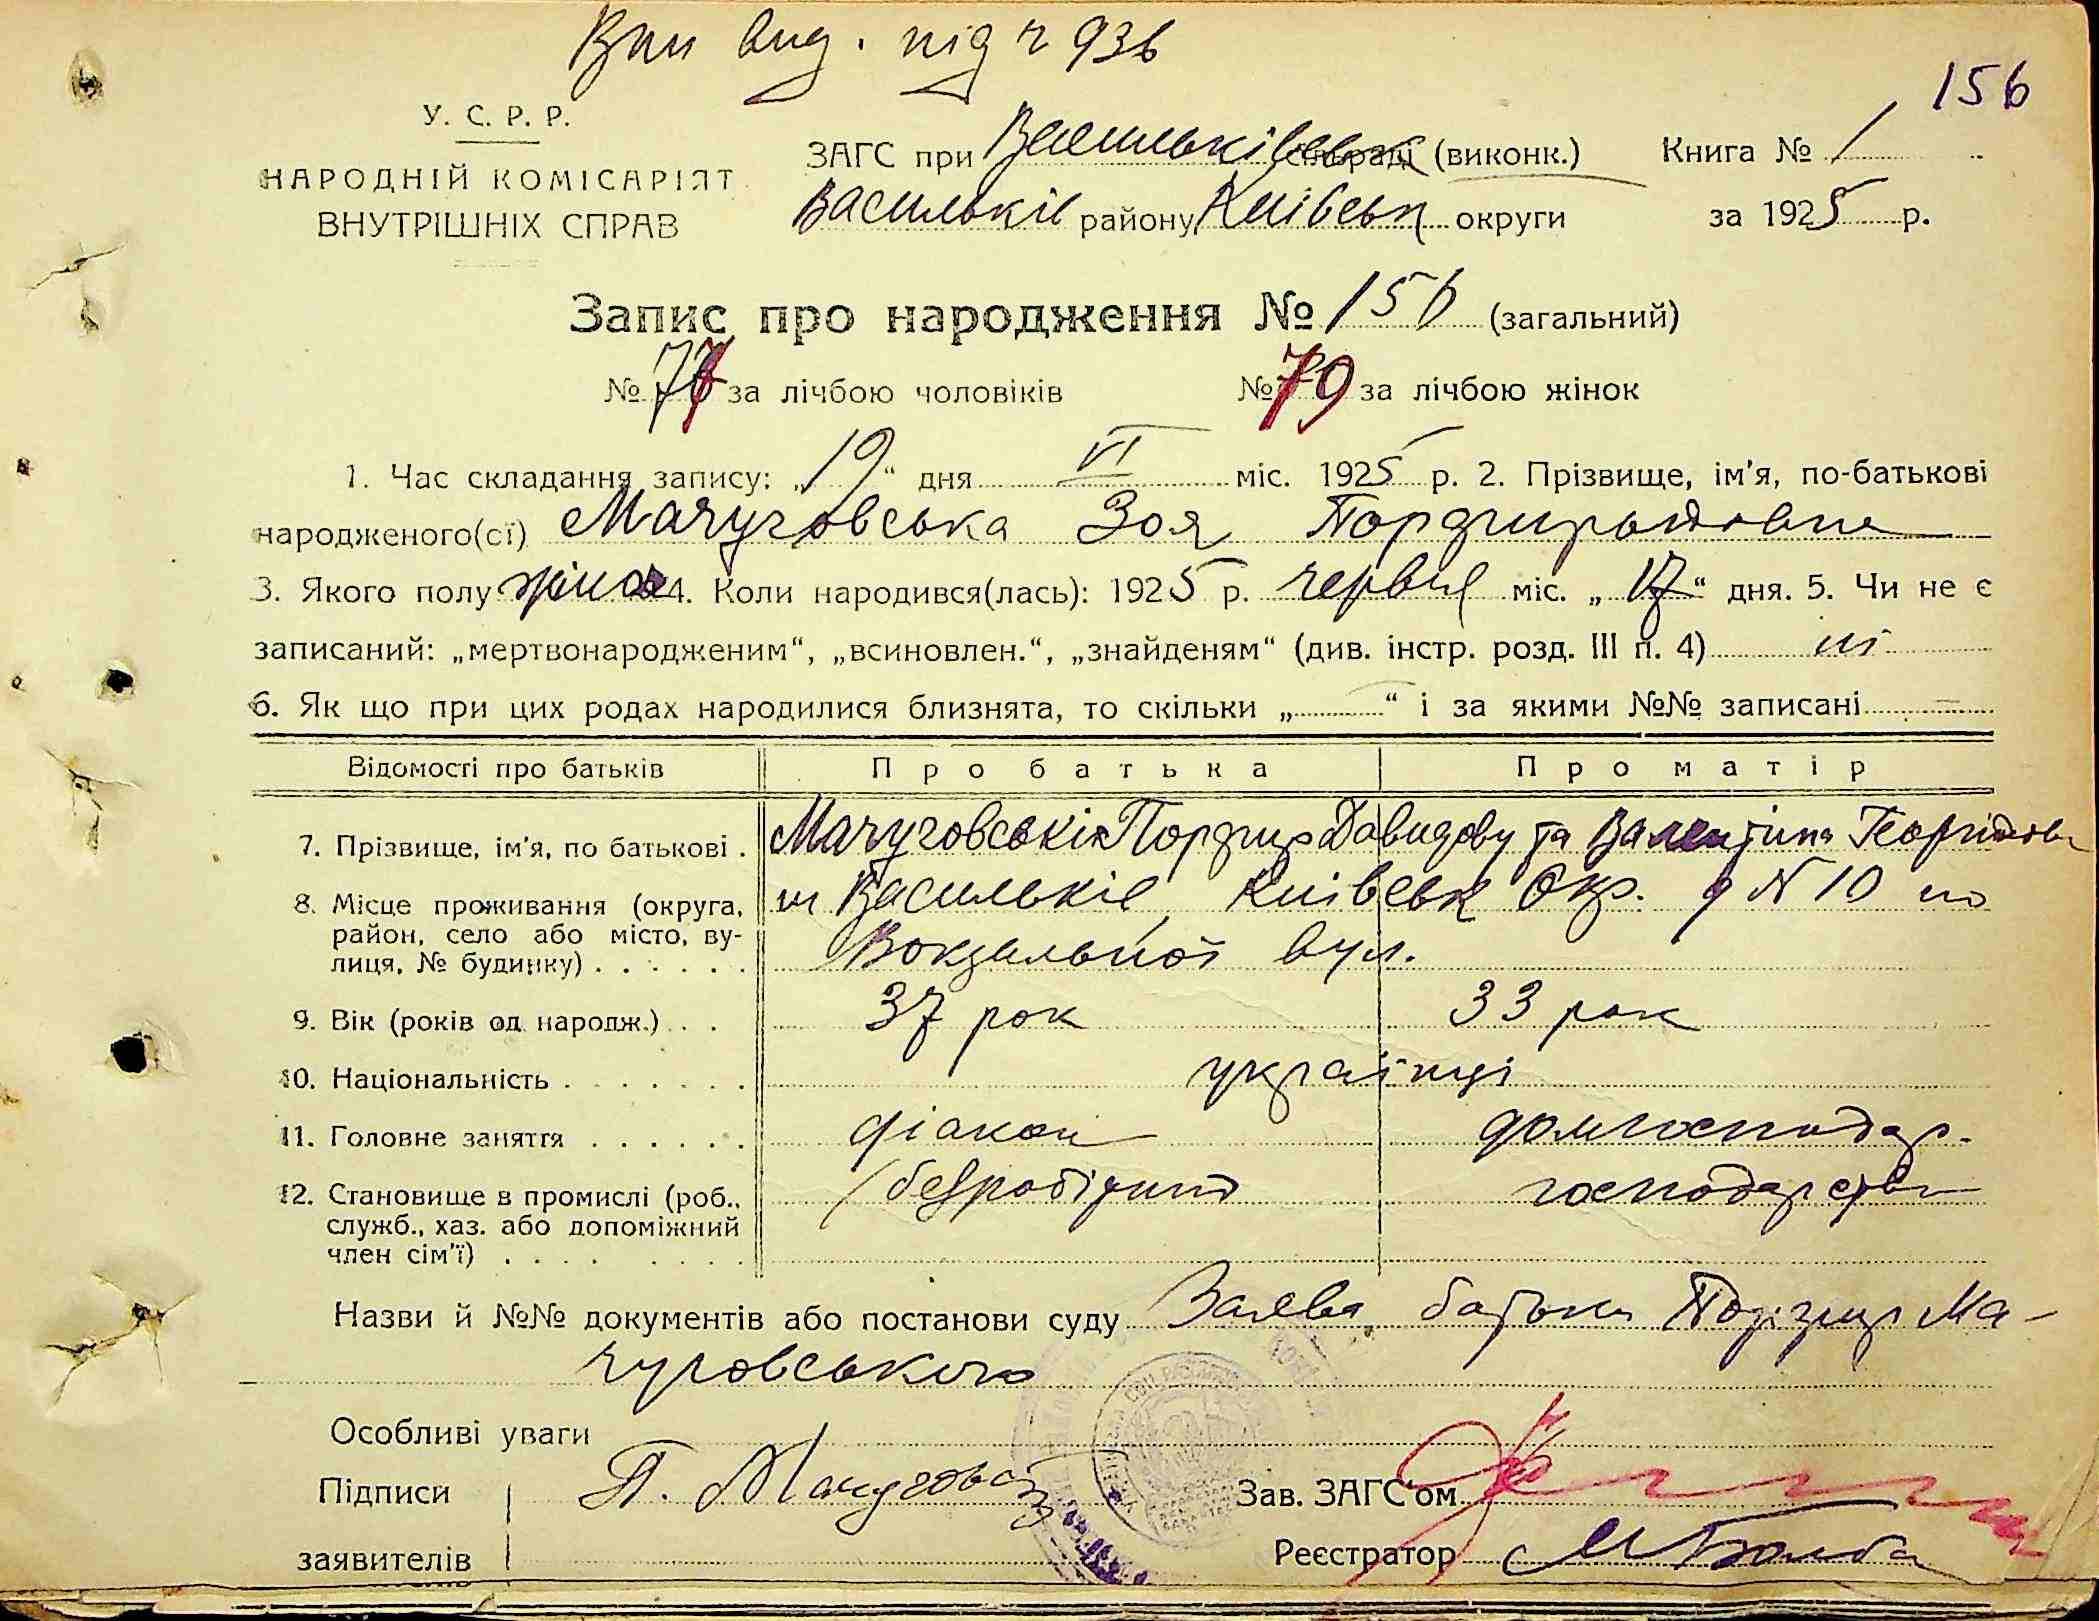 Вип вид. під ч 936
156
У. С. Р. Р.
НАРОДНІЙ КОМІСАРІЯТ
ВНУТРІШНІХ СПРАВ
ЗАГС при Васильківськ сільраді (виконк.) Книга № 1
Васильків району Київськ округи за 1925 р.
Запис про народження № 156 (загальний)
№ 77 за лічбою чоловіків № 79 за лічбою жінок
1. Час складання запису: „19“ дня VI міс. 1925 р. 2. Прізвище, ім'я, по-батькові
народженого(сі) Мачуговська Зоя Порфирьовна
3. Якого полу жіноч 4. Коли народився(лась): 1925 р. червня міс. „17“ дня. 5. Чи не є
записаний: „мертвонародженим“, „всиновлен.“, „знайденям“ (див. інстр. розд. III п. 4) ні
6. Як що при цих родах народилися близнята, то скільки „ “ і за якими №№ записані
Відомості про батьків Про батька Про матір
7. Прізвище, ім'я, по батькові . Мачуговські Порфир Давидову та Валентина Георгіевна
8. Місце проживання (округа, м Васильків, Київськ Окр. д № 10 по
район, село або місто, ву-
лиця, № будинку) . . . . . . Вокзальної вул.
9. Вік (років од народж.) . . . 37 рок 33 рок
10. Національність . . . . . . . українці
11. Головне заняття . . . . . . діакон домгосподар.
12. Становище в промислі (роб., безробітний господарство
служб., хаз. або допоміжний
член сім'ї) . . . . . . . .
Назви й №№ документів або постанови суду Заява батька Порфир Ма-
чуговського
Особливі уваги
Підписи П. Мачуговський Зав. ЗАГС'ом
заявителів Реєстратор